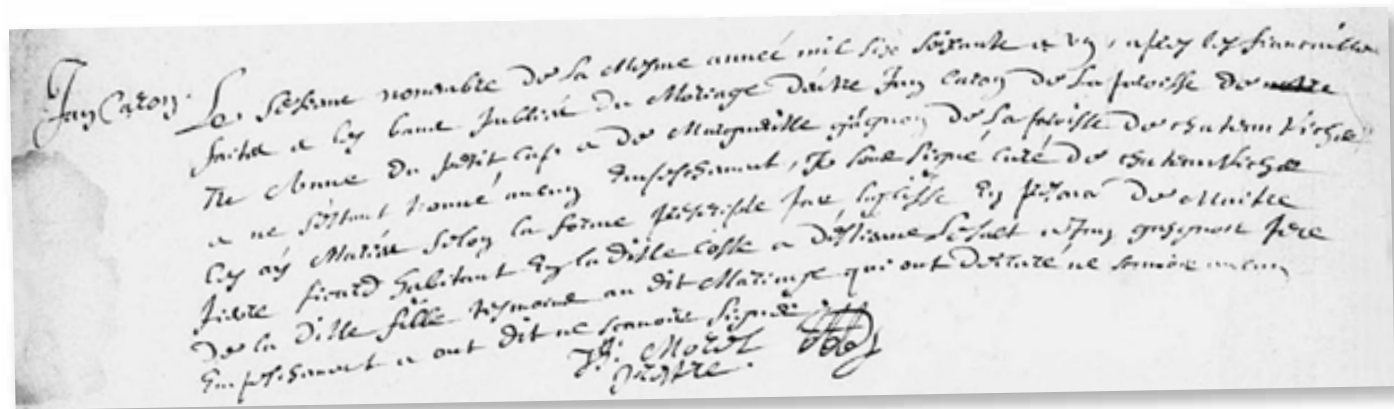 Jan Caron. Le seseme nouembre de la mesme année mil six soixante et un, apres les fiancailles
faites et les bans publiés du Mariage d'entre Jan Caron de la paroisse de
Ste Anne du petit cap et de Marguerite gagnon de la paroisse de chateau Richer
et ne s'estant trouué aucun empeschement, Je soub signé curé de chateau Richer
les ay Mariés selon la forme prescripte par l'eglise en presence de Maitre
pierre picard habitant en la ditte coste et d'estienne et Jan gasgnon pere
de la ditte fille tesmoins au dit Mariage qui ont declaré ne scauoir aucun
empeschement et ont dit ne scauoir signer
Morel
prestre.